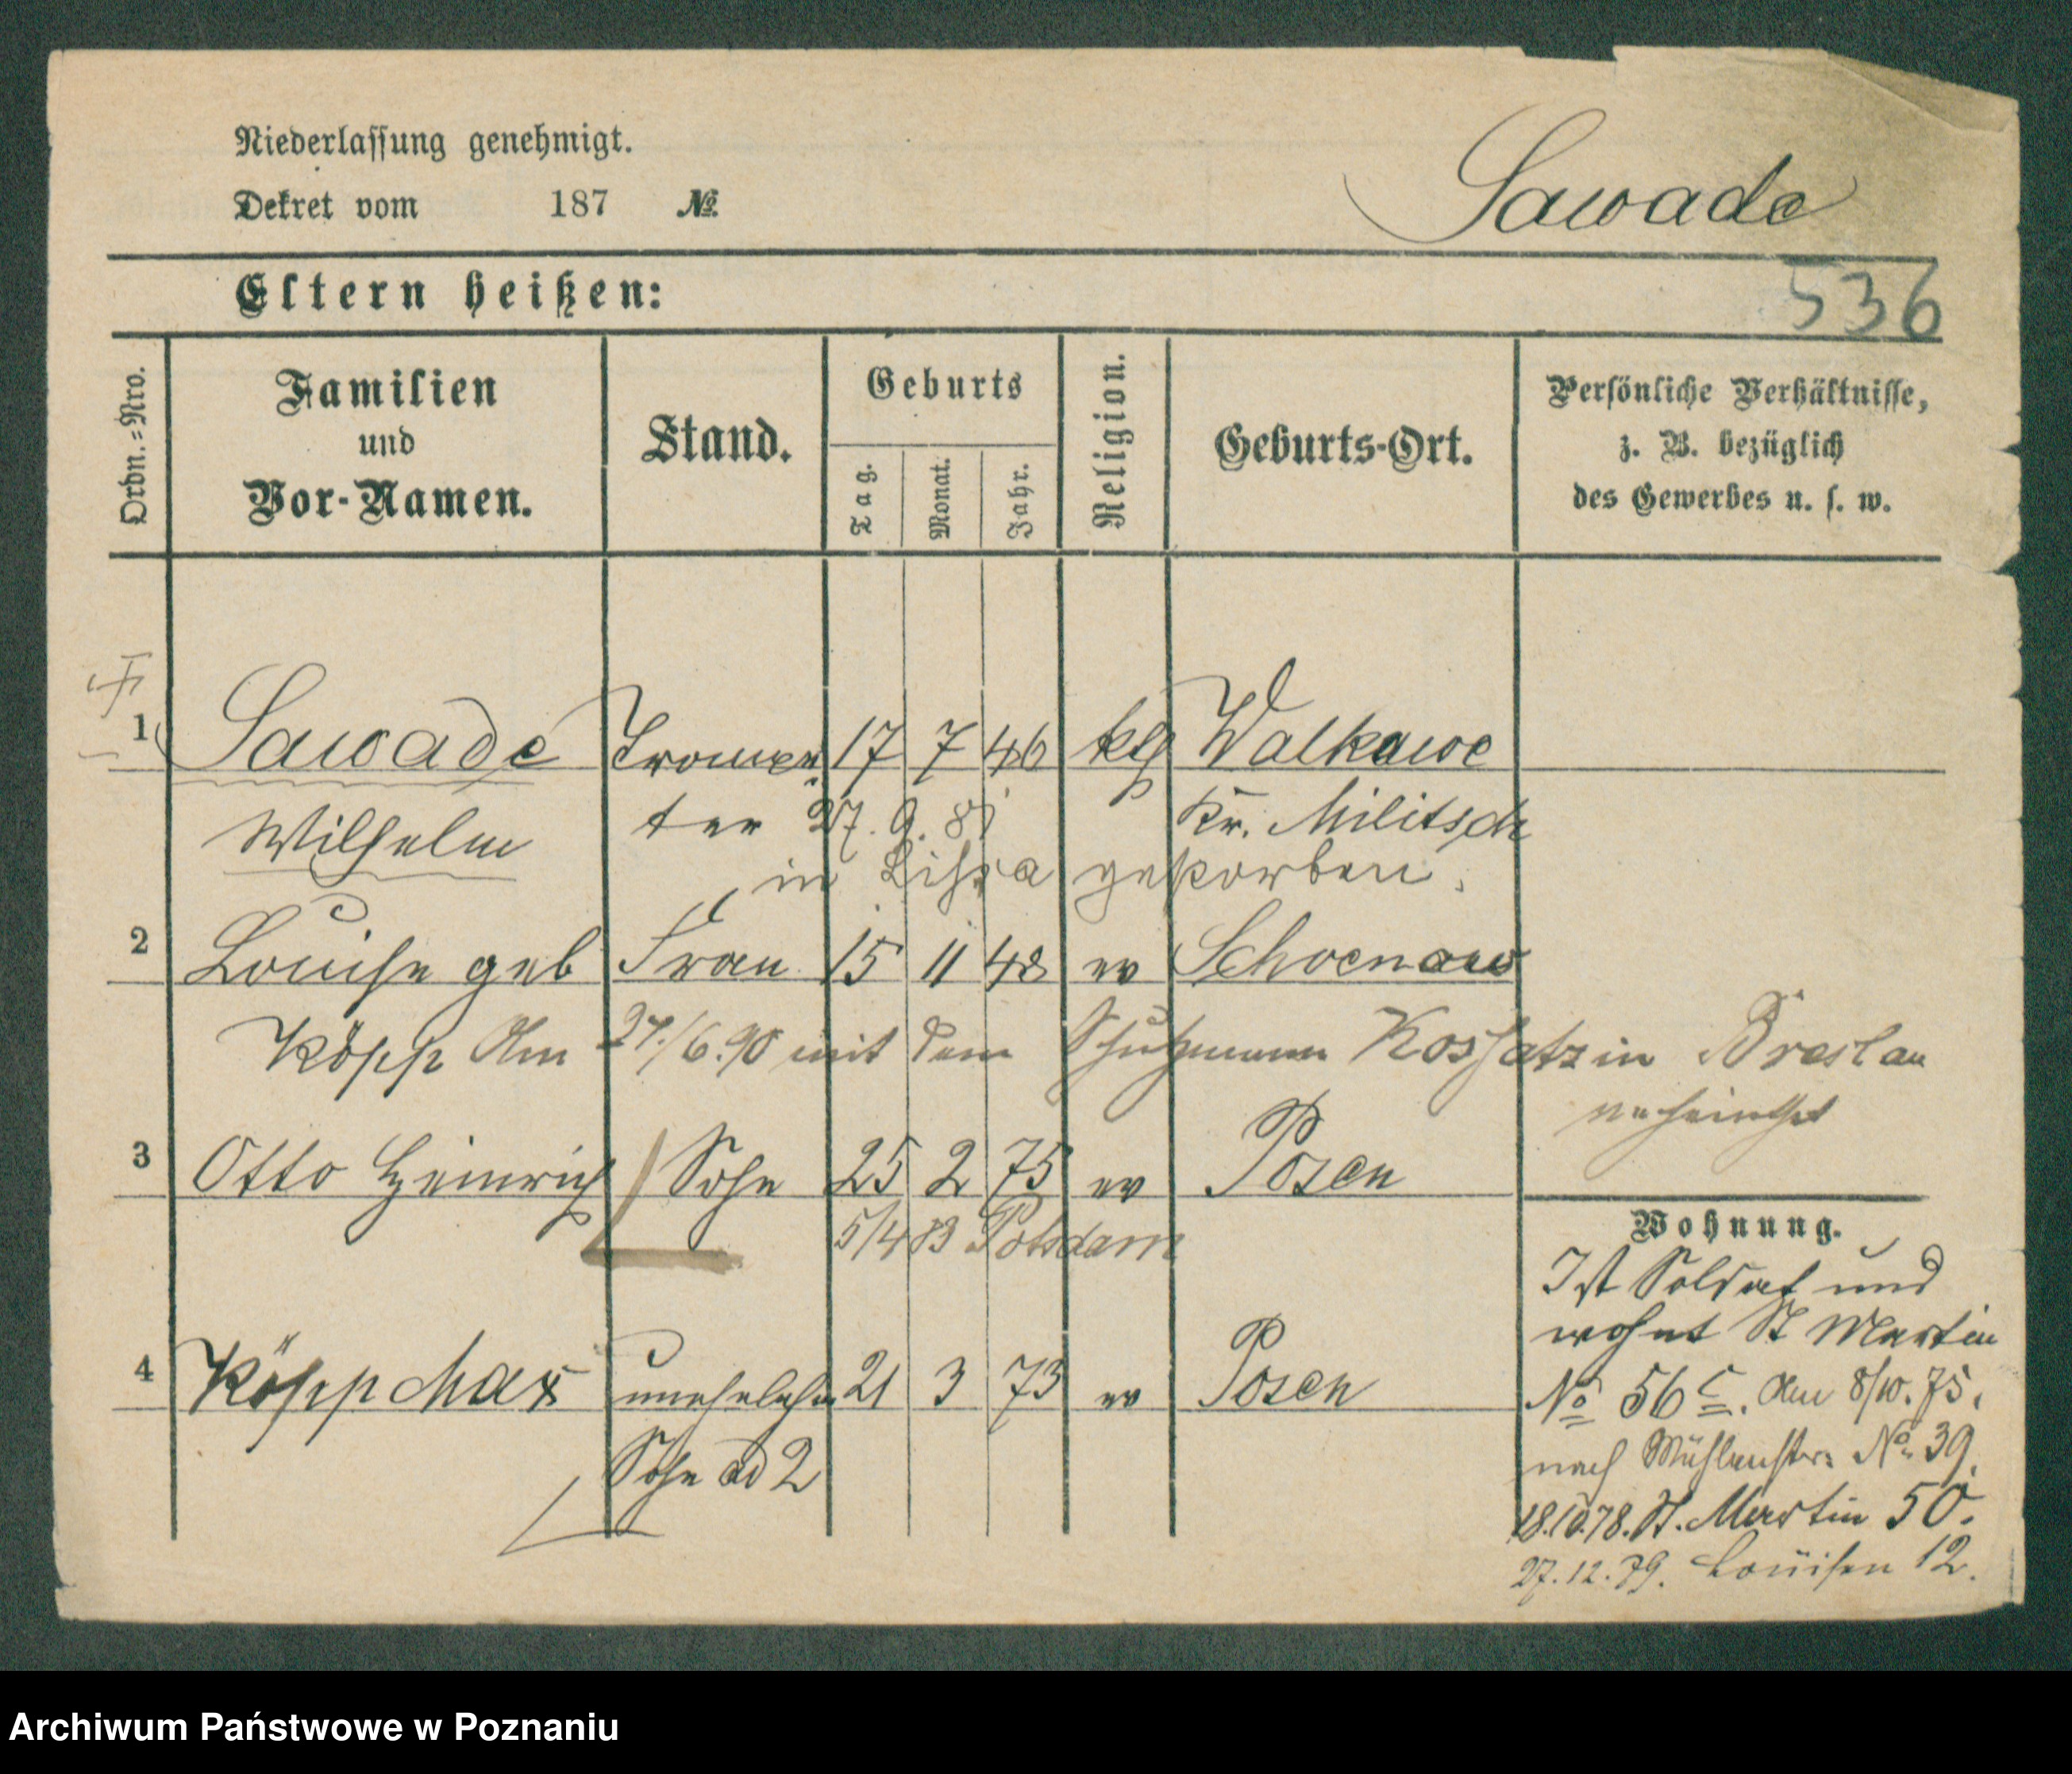 Niederlassung genehmigt.
Dekret vom 187 No.
Sawade
Eltern heißen:
536
Ordn.-Nro.
Familien
und
Vor-Namen.
Stand.
Geburts
Tag.
Monat.
Jahr.
Religion.
Geburts-Ort.
Persönliche Verhältnisse,
z. B. bezüglich
des Gewerbes u. s. w.
1 Sawade Trompe 17 7 46 klg Walkawe
Wilhelm ter 27. 9. 81 Kr. Militsch
in Lissa gestorben.
2 Louise geb Frau 15 11 48 ev Schoenau
Köpp Am 24./6.90 mit dem Schutzmann Kossatz in Breslau
verheirathet
3 Otto Heinrich Sohn 25 2 75 ev Posen
5/4 83 Potsdam
Wohnung.
Ist Soldat und
wohnt St Martin
No 56 c. Am 8/10.75.
nach Mühlenstr. No. 39.
18.10.78. St. Martin 50.
27.12.79. Louisen 12.
4 Köpp Max unehelicher 21 3 73 ev Posen
Sohn ad 2
Archiwum Państwowe w Poznaniu